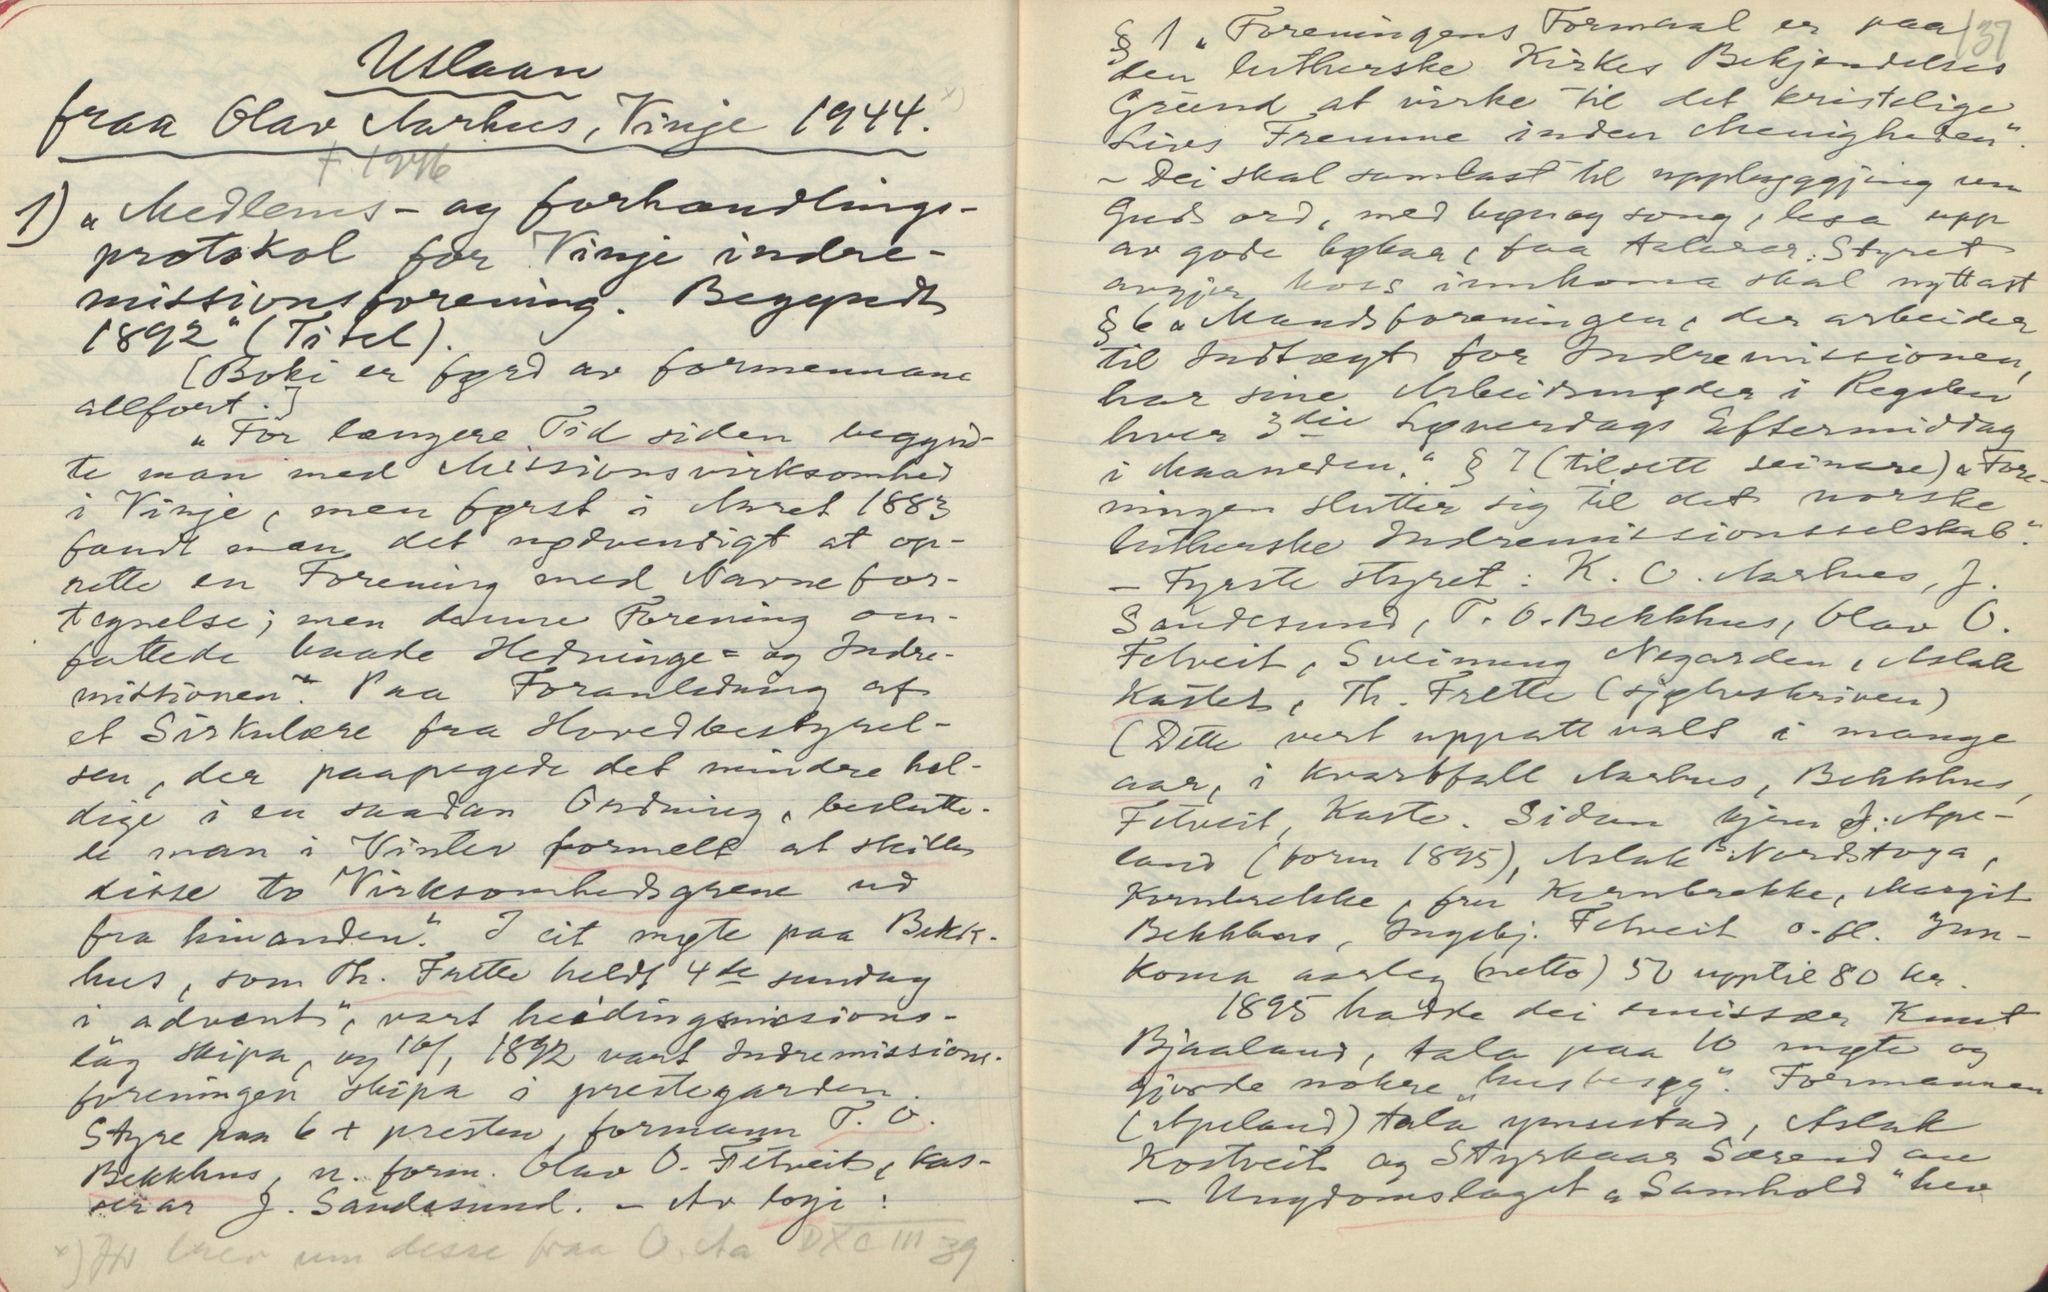 Utlaan
fraa Olav Aarhus, Vinje 1944. x)
† 1946
1) „Medlems- og forhandlings-
protokol for Vinje indre-
missionsforening. Begyndt
1892" (Titel).
(Boki er førd av formennane
allfort.)
„For længere Tid siden begynd-
te man med Missionsvirksomhed
i Vinje, men først i Aaret 1883
fandt man det nødvendigt at op-
rette en Forening med Navnefor-
tegnelse; men denne Forening om-
fattede baade Hedninge- og Indre-
missionen." Paa Foranledning af
et Sirkulære fra Hovedbestyrel-
sen, der paapegede det mindre hel-
dige i en saadan Ordning, beslutte-
de man i Vinter formelt at skille
disse to Virksomhedsgrene ud
fra hinanden." I eit møte paa Bekk-
hus, som Th. Frette heldt 4de sundag
i advent", vart heidingsmissions-
lag skipa, og 10/1 1892 vart Indremissions-
foreningen skipa i prestegarden.
Styre paa 6 + presten, formann T. O.
Bekkhus, n. form. Olav O. Fetveit, kas-
serar J. Sandesund. – Av logi:
x) Jfr brev um desse fraa O. Aa DXC III 39
137
§ 1 „Foreningens Formaal er paa
den lutherske Kirkes Bekjendelses
Grund at virke til det kristelige
Livs Fremme inden Menigheden".
– Dei skal samlast til uppbyggjing um
Guds ord, med bøn og song, lesa upp
av gode bøker, faa talarar. Styret
avgjer kors innkoma skal nyttast
§ 6 „Mandsforeningen, der arbeider
til Indtægt for Indremissionen,
har sine Arbeidsmøder i Regelen
hver 3die Løverdags Eftermiddag
i Maaneden." § 7 (tilsett seinare) „Fore-
ningen slutter sig til det norske
lutherske Indremissionsselskab".
– Fyrste styret: K. O. Aarhus, J.
Sandesund, T. O. Bekkhus, Olav O.
Fetveit, Sveinung Negarden, Aslak
Kaste, Th. Frette (sjølvskriven)
(Dette vert uppatt valt i mange
aar, i kvartfall Aarhus, Bekkhus,
Fetveit, Kaste. Sidan kjem J. Ape-
land (form 1895), Aslak Nordstoga,
Kornbrekke, fru Kornbrekke, Margit
Bekkhus, Ingebj. Fetveit o. fl. Inn-
koma aarleg (netto) 50 upptil 80 kr.
1895 hadde dei emissær Knut
Bjaaland, tala paa 10 møte og
gjorde nokre „husbesøg". Formannen
(Apeland) tala ymsestad, Aslak
Kostveit og Styrkaar Særend au
– Ungdomslaget „Samhold" hev